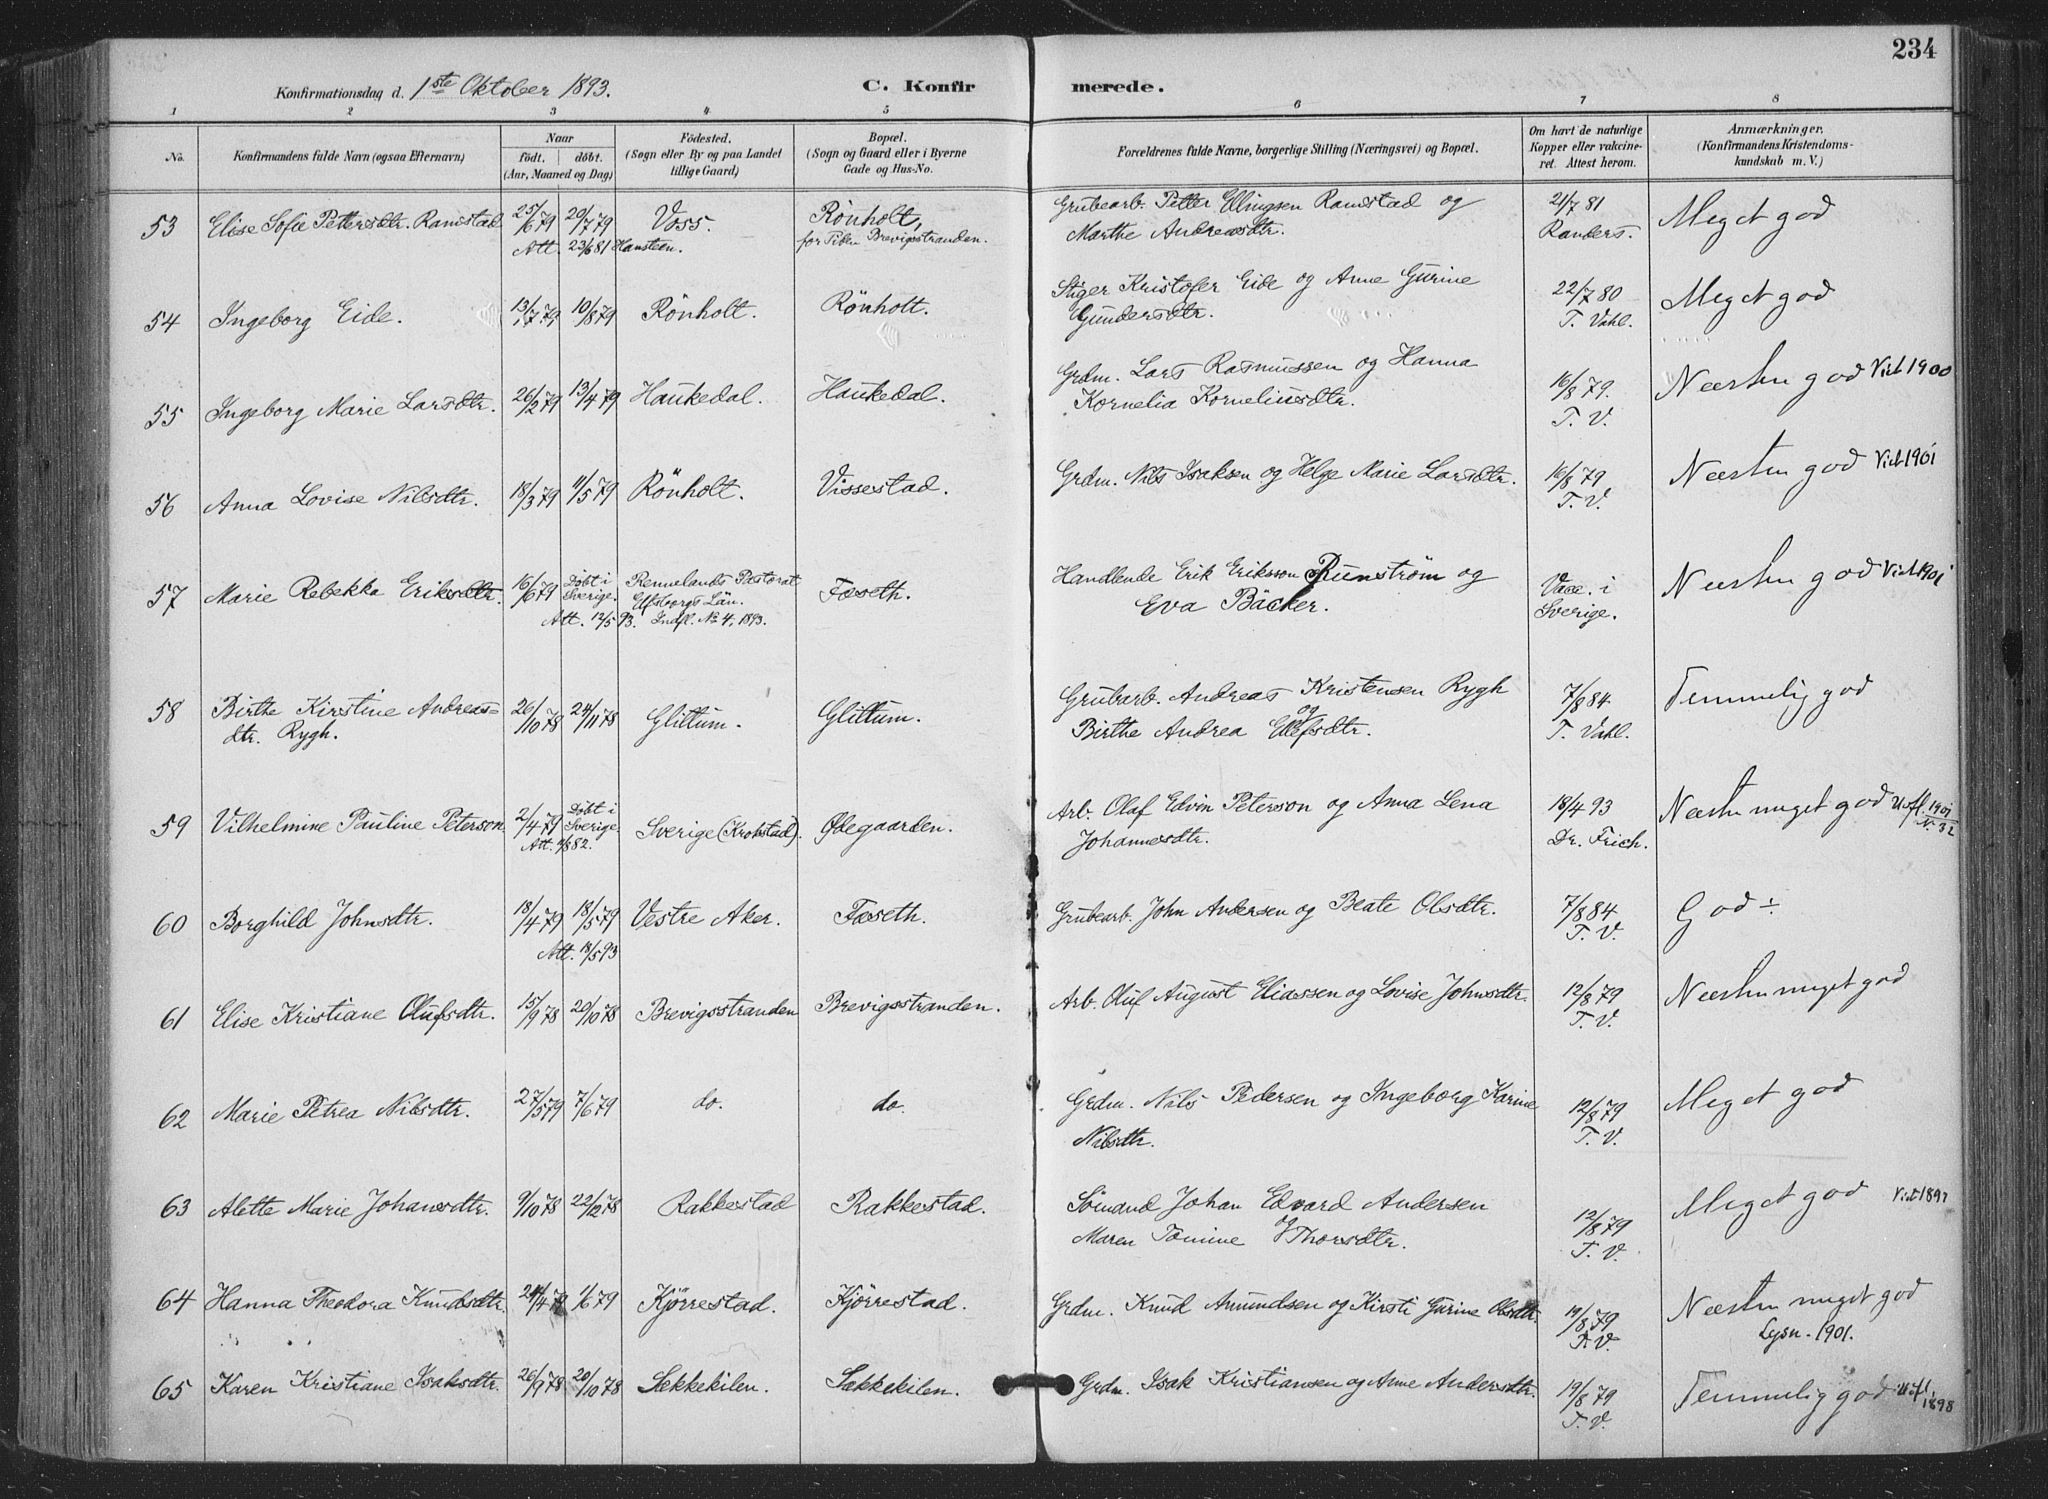 234
Konfirmationsdag d. 1ste Oktober 1893. C. Konfir merede.
1 2 3 4 5 6 7 8
No. Konfirmandens fulde Navn (ogsaa Efternavn) Naar födt. döbt. (Aar, Maaned og Dag) Födested. (Sogn eller By og paa Landet tillige Gaard) Bopæl. (Sogn og Gaard eller i Byerne Gade og Hus-No. Forældrenes fulde Navne, borgerlige Stilling (Næringsvei) og Bopæl. Om havt de naturlige Kopper eller vakcineret. Attest herom. Anmærkninger. (Konfirmandens Kristendomskundskab m. V.)
53 Elise Sofie Pettersdtr. Ramstad 25/6 79 20/7 79 Voss. Rönholt, Grubearb. Petter Ellingsen Ramstad og 21/7 81 Meget god
Att. 23/6 81 Hansteen. for Tiden Brevigsstranden. Marthe Andreasdtr. Randers.
54 Ingeborg Eide. 13/7 79 10/8 79 Rönholt. Rönholt. Stiger Kristofer Eide og Anne Gurine 22/7 80 Meget god
Gundersdtr. T. Vahl.
55 Ingeborg Marie Larsdtr. 26/2 79 13/4 79 Haukedal. Haukedal. Grdm. Lars Rasmussen og Hanna 16/8 79. Næsten god Viet 1900
Kornelia Korneliusdtr. T. V.
56 Anna Lovise Nilsdtr. 18/3 79 11/5 79 Rönholt. Vissestad. Grdm. Nils Isaksen og Helge Marie Larsdtr. 16/8 79 Næsten god Viet 1901
T. V.
57 Marie Rebekka Eriksdtr. 16/6 79 Döbt i Sverige. Rennelands Pastorat Elfsborgs Län. Fæseth. Handlende Erik Eriksson Runström og Vacc. i Næsten god Viet 1901
Att. 12/5 93. Indfl. No 4, 1893. Eva Bäcker. Sverige.
58 Birthe Kirstine Andreas- 26/10 78 24/11 78 Glittum. Glittum. Grubarb. Andreas Kristensen Rygh 7/8 84 Temmelig god
dtr. Rygh. og Birthe Andrea Elefsdtr. T. Vahl.
59 Vilhelmine Pauline Peterson 2/4 79 Döbt i Sverige. Sverige (Krokstad). Ødegaarden. Arb. Olaf Edvin Peterson og Anna Lena 18/4 93 Næsten meget god Utfl. 1901 N. 32
Att. 82. Johannesdtr. Dr. Frich.
60 Borghild Johnsdtr. 18/4 79 18/5 79 Vestre Aker. Fæseth. Grubearb. John Andersen og Beate Olsdtr. 7/8 84 God ÷
Att. 18/5 93 T. V.
61 Elise Kristiane Olufsdtr. 15/9 78 20/10 78 Brevigsstranden Brevigsstranden. Arb. Oluf August Eliassen og Lovise Johnsdtr. 12/8 79 Næsten meget god
T. V.
62 Marie Petrea Nilsdtr. 27/5 79 7/6 79 do. do. Grdm. Nils Pedersen og Ingeborg Karine 12/8 79 Meget god
Nilsdtr. T. V.
63 Alette Marie Johansdtr. 9/10 78 22/12 78 Rakkestad Rakkestad. Sömand Johan Edvard Andersen 12/8 79 Meget god Viet 1897
og Maren Tomine Thorsdtr. T. V.
64 Hanna Theodora Knudsdtr. 24/4 79 1/6 79 Kjörrestad. Kjörrestad. Grdm. Knud Amundsen og Kirsti Gurine Olsdtr. 19/8 79 Næsten meget god
T. V. Lysn. 1901.
65 Karen Kristiane Isaksdtr. 26/9 78 20/10 78 Sækkekilen. Sækkekilen. Grdm. Isak Kristiansen og Anne Andersdtr. 19/8 79 Temmelig god Utfl. 1898
T. V.